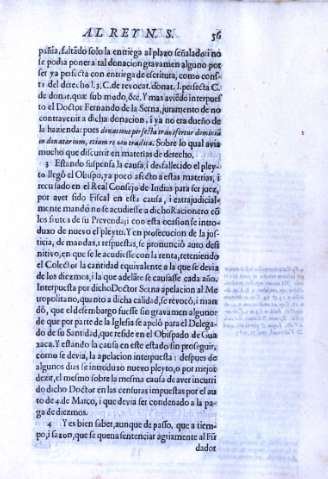 AL REY N. S. 36
pañia, faltãdo solo la entrega al plazo señalado: i no
se podia poner a tal donacion gravamen alguno por
ser ya perfecta con entrega de escritura, como cons-
ta del derecho l. 3. C. de revocat. donat. l. perfecta C.
de donat. quæ sub modo, &c. Y mas aviẽdo interpues-
to el Doctor Fernando de la Serna, juramento de no
contravenir a dicha donacion, i ya no era dueño de
la hazienda: pues donatione perfecta transfertur dominiũ
in donatarium, etiam re non tradita. Sobre lo qual avia
mucho que discurrir en materias de derecho.
3 Estando suspensa la causa, i desfallecido el pleyto
llegò el Obispo, ya poco afecto a estas materias, i
recusado en el Real Consejo de Indias para ser juez,
por aver sido Fiscal en esta causa, i extrajudicial-
mente mandò no se acudiesse a dicho Racionero cõ
los frutos de su Prevenda; i con esta ocasion se intro-
duxo de nuevo el pleyto. Y en prosecucion de la jus-
ticia, de mandas, i respuestas, se pronunciò auto defi
nitivo, en que se le acudiesse con la renta, reteniendo
el Colector la cantidad equivalente a la que se devia
de los diezmos, i la que adelãte se causasse cada año.
Interpuesta por dicho Doctor Serna apelacion al Me
tropolitano, quanto a dicha calidad, se revocò, i man
dò, que el desembargo fuesse sin gravamen alguno
de que por parte de la Iglesia se apelò para el Delega-
do de su Santidad, que reside en el Obispado de Gua
xaca. Y estando la causa en este estado sin proseguir,
como se devia, la apelacion interpuesta: despues de
algunos dias se introduxo nuevo pleyto, o por mejor
dezir, el mesmo sobre la mesma causa de aver incurri
do dicho Doctor en las censuras impuestas por el au
to de 4. de Março, i que devia ser condenado a la pa-
ga de diezmos.
4 Y es bien saber, aunque de passo, que a tiem-
po, i sazon, que se queria sentenciar agriamente al Fũ
dador